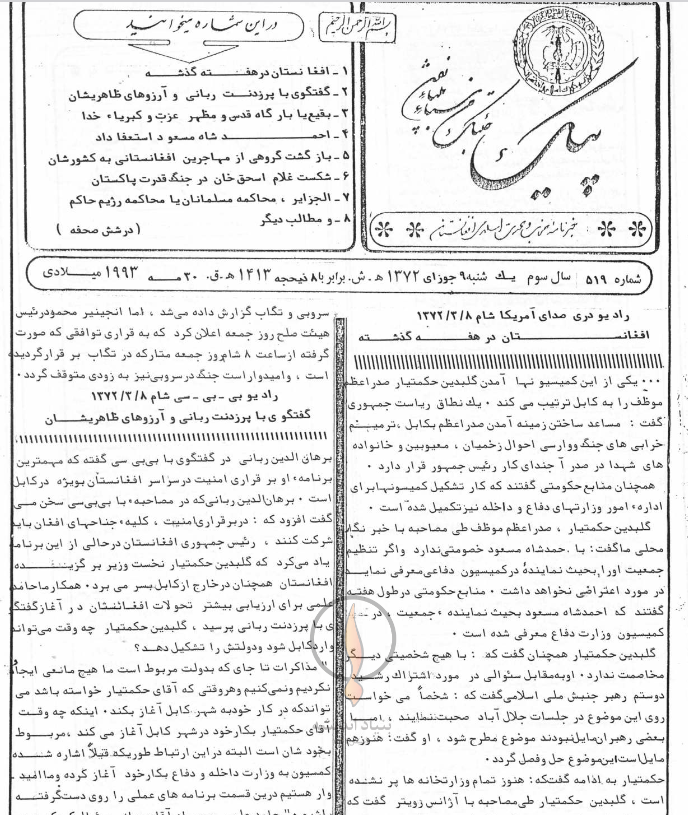 بسم الله الرحمن الرحیم
پیک
خبرنامه
شماره ۵۱۹ سال سوم یک شنبه ۹ جوزای ۱۳۷۲ هـ.ش. برابر با ۸ ذیحجه ۱۴۱۳ هـ.ق. ۳۰ مه ۱۹۹۳ میلادی
در این شماره میخوانید
۱ - افغانستان در هفته گذشته
۲ - گفتگوی با پرزدنت ربانی و آرزوهای ظاهریشان
۳ - بقیع یا بارگاه قدس و مظهر عزت و کبریاء خدا
۴ - احمد شاه مسعود استعفا داد
۵ - بازگشت گروهی از مهاجرین افغانستانی به کشورشان
۶ - شکست غلام اسحق خان در جنگ قدرت پاکستان
۷ - الجزایر ، محاکمه مسلمانان یا محاکمه رژیم حاکم
۸ - و مطالب دیگر
( در شش صفحه )
رادیو دری صدای آمریکا شام ۱۳۷۲/۳/۸
افغانستان در هفته گذشته
۰۰۰ یکی از این کمیسیونها آمدن گلبدین حکمتیار صدراعظم
موظف را به کابل ترتیب می کند ۰ یک نطاق ریاست جمهوری
گفت : مساعد ساختن زمینه آمدن صدراعظم بکابل ، ترمیم
خرابی های جنگ ووارسی احوال زخمیان ، معیوبین و خانواده
های شهدا در صدر آجندای کار رئیس جمهور قرار دارد ۰
همچنان منابع حکومتی گفتند که کار تشکیل کمیسونها برای
اداره امور وزارتهای دفاع و داخله نیز تکمیل شده است ۰
گلبدین حکمتیار ، صدراعظم موظف طی مصاحبه با خبرنگار
محلی ما گفت : با احمدشاه مسعود خصومتی ندارد واگر تنظیم
جمعیت اورا بحیث نماینده در کمیسیون دفاعی معرفی نماید
در مورد اعتراضی نخواهد داشت ۰ منابع حکومتی در طول هفته
گفتند که احمدشاه مسعود بحیث نماینده جمعیت ، در
کمیسیون وزارت دفاع معرفی شده است ۰
گلبدین حکمتیار همچنان گفت که : با هیچ شخصیتی دیگر
مخاصمت ندارد ۰ اوبه مقابل سئوالی در مورد اشتراک رشید
دوستم رهبر جنبش ملی اسلامی گفت که : شخصاً می خواست
روی این موضوع در جلسات جلال آباد صحبت نمایند ، اما
بعضی رهبران مایل نبودند موضوع مطرح شود ، او گفت : هنوز هم
مایل است این موضوع حل وفصل گردد ۰
حکمتیار به ادامه گفت که : هنوز تمام وزارتخانه ها پر نشده
است ، گلبدین حکمتیار طی مصاحبه با آژانس رویتر گفت که
سروبی و تگاب گزارش داده می شد ، اما انجینیر محمود رئیس
هیئت صلح روز جمعه اعلان کرد که به قراری توافقی که صورت
گرفته از ساعت ۸ شام روز جمعه متارکه در تگاب بر قرار گردیده
است ، وامیدوار است جنگ در سروبی نیز به زودی متوقف گردد ۰
رادیو بی - بی - سی شام ۱۳۷۲/۳/۸
گفتگوی با پرزدنت ربانی و آرزوهای ظاهریشان
برهان الدین ربانی در گفتگوی با بی بی سی گفته که مهمترین
برنامه او بر قراری امنیت در سراسر افغانستان بویژه در کابل
است ۰ برهان الدین ربانی که در مصاحبه با بی بی سی سخن می
گفت افزود که : در برقراری امنیت ، کلیه جناحهای افغان باید
شرکت کنند ، رئیس جمهوری افغانستان در حالی از این برنامه
یاد می کرد که گلبدین حکمتیار نخست وزیر بر گزیننده
افغانستان همچنان در خارج از کابل بسر می برد ۰ همکار ما حامد
علمی برای ارزیابی بیشتر تحولات افغانستان در آغاز گفتگو
ی با پرزدنت ربانی پرسید ، گلبدین حکمتیار چه وقت می تواند
وارد کابل شود ودولتش را تشکیل دهد ؟
" مذاکرات تا جای که بدولت مربوط است ما هیچ مانعی ایجاد
نکردیم ونمی کنیم و هروقتی که آقای حکمتیار خواسته باشد می
تواند که در کار خود به شهر کابل آغاز بکند ۰ اینکه چه وقت
آقای حکمتیار بکار خود در شهر کابل آغاز می کند ، مربوط
بخود شان است البته در این ارتباط طوریکه قبلاً اشاره شده
کمسیون به وزارت داخله و دفاع بکار خود آغاز کرده وما امید
وار هستیم درین قسمت برنامه های عملی را روی دست گرفته